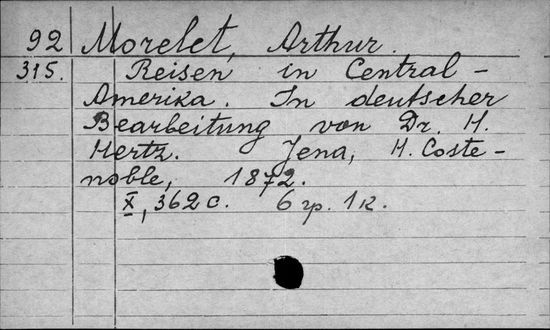 92 Morelet, Arthur.
315. Reisen in Central-
Amerika. In deutscher
Bearbeitung von Dr. H.
Hertz. Jena, H. Coste-
noble, 1872.
X, 362 с. 6 гр. 1 к.